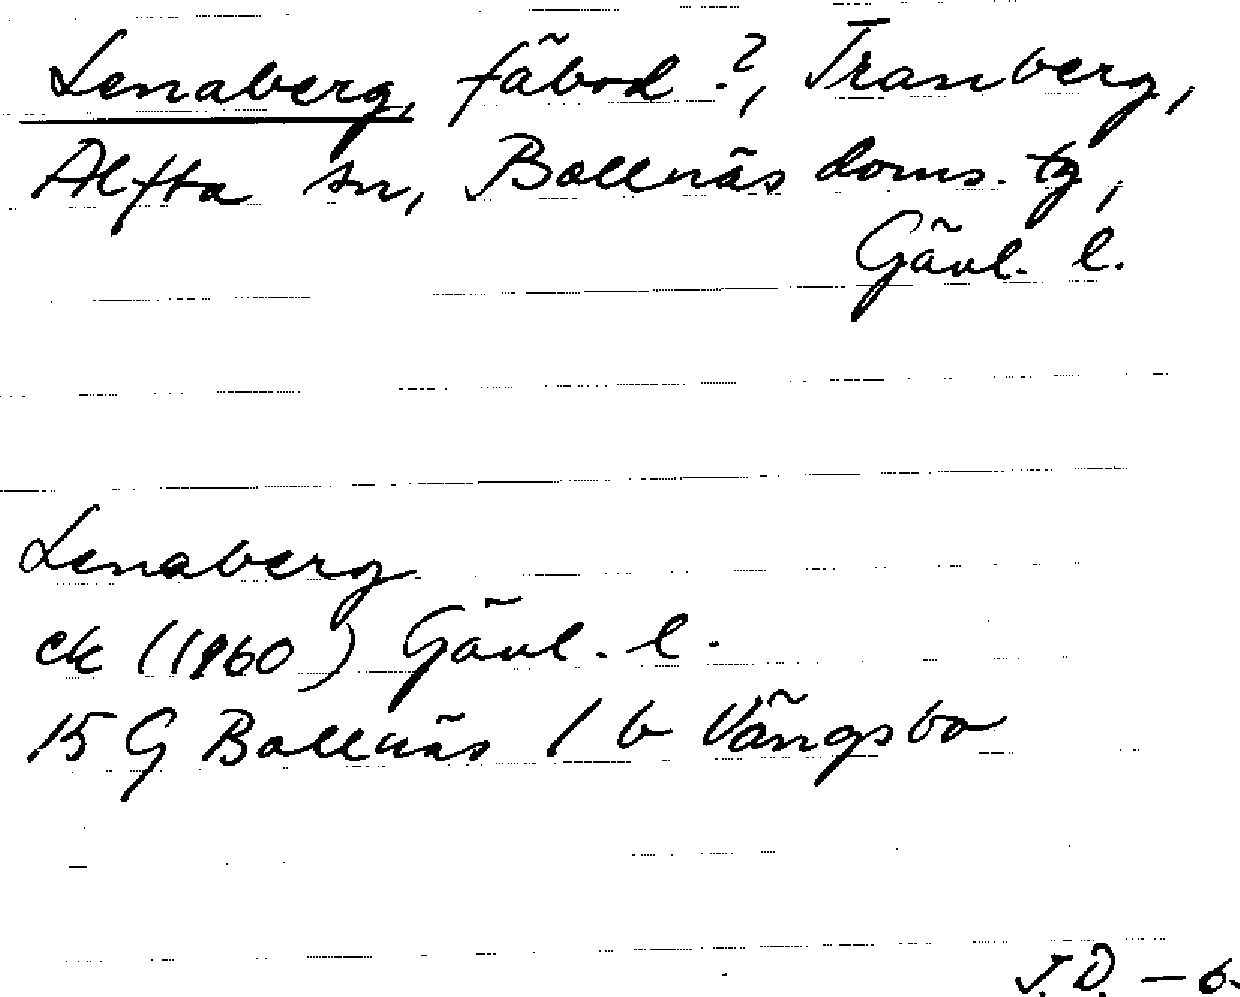 Lenaberg, fäbod ?, Tranberg,
Alfta sn, Bollnäs doms. tg,
Gävl. l.
Lenaberg
ek (1960) Gävl. l.
15 G Bollnäs 1 b Vängsbo
J.D. - 6.